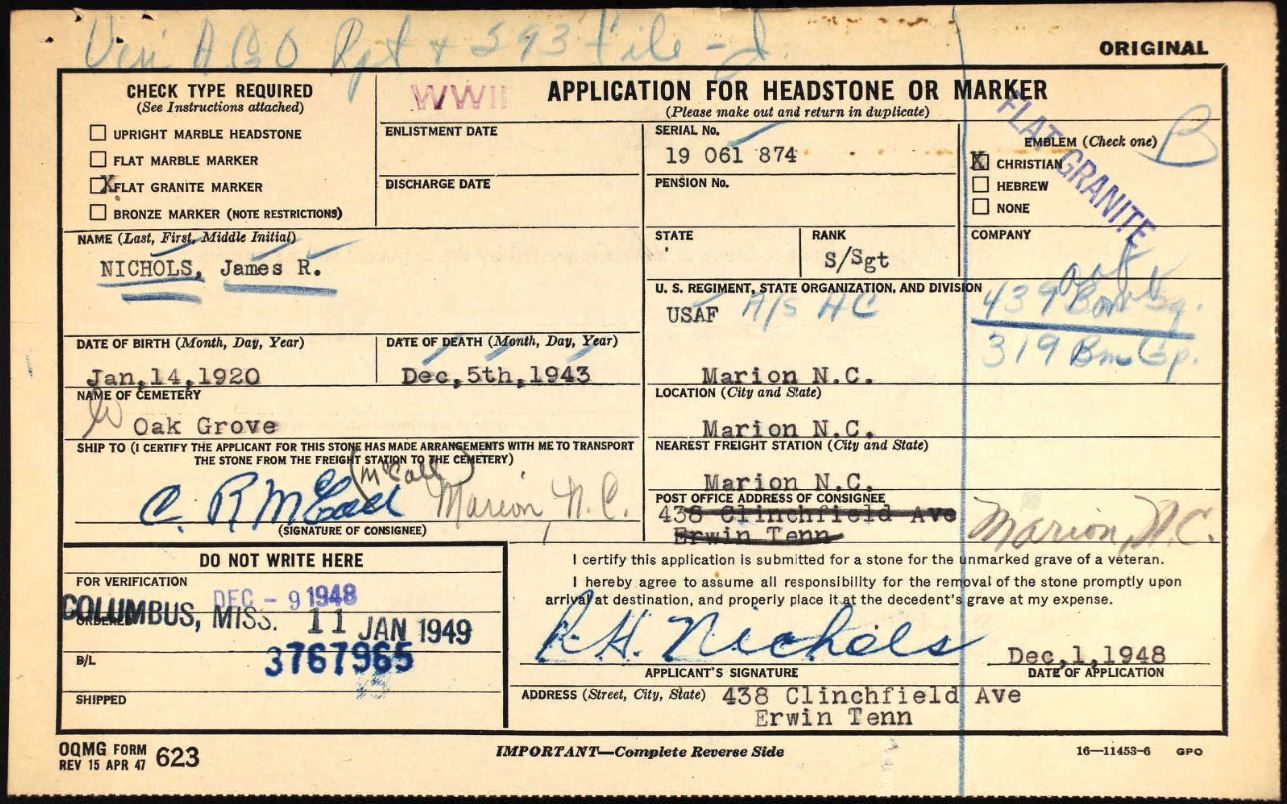 Vin AGO Rpt + 293 file - J.
ORIGINAL
CHECK TYPE REQUIRED
(See Instructions attached)
UPRIGHT MARBLE HEADSTONE
FLAT MARBLE MARKER
X FLAT GRANITE MARKER
BRONZE MARKER (NOTE RESTRICTIONS)
WWII
APPLICATION FOR HEADSTONE OR MARKER
(Please make out and return in duplicate)
ENLISTMENT DATE
DISCHARGE DATE
SERIAL No.
19 061 874
PENSION No.
EMBLEM (Check one)
X CHRISTIAN
HEBREW
NONE
B
FLAT GRANITE
NAME (Last, First, Middle Initial)
NICHOLS, James R.
STATE
RANK
S/Sgt
COMPANY
U. S. REGIMENT, STATE ORGANIZATION, AND DIVISION
USAF A/S AC
439 Bom Sq.
319 Bm Gp.
DATE OF BIRTH (Month, Day, Year)
Jan,14,1920
DATE OF DEATH (Month, Day, Year)
Dec,5th,1943
NAME OF CEMETERY
Oak Grove
Marion N.C.
LOCATION (City and State)
Marion N.C.
SHIP TO (I CERTIFY THE APPLICANT FOR THIS STONE HAS MADE ARRANGEMENTS WITH ME TO TRANSPORT
THE STONE FROM THE FREIGHT STATION TO THE CEMETERY)
(McCall)
C. R McCall Marion, N.C.
(SIGNATURE OF CONSIGNEE)
NEAREST FREIGHT STATION (City and State)
Marion N.C.
POST OFFICE ADDRESS OF CONSIGNEE
438 Clinchfield Ave
Erwin Tenn
Marion, N.C.
DO NOT WRITE HERE
FOR VERIFICATION
DEC - 9 1948
ORDERED
COLUMBUS, MISS. 11 JAN 1949
B/L
3767965
SHIPPED
I certify this application is submitted for a stone for the unmarked grave of a veteran.
I hereby agree to assume all responsibility for the removal of the stone promptly upon
arrival at destination, and properly place it at the decedent's grave at my expense.
R.H. Nichols
APPLICANT'S SIGNATURE
Dec,1,1948
DATE OF APPLICATION
ADDRESS (Street, City, State) 438 Clinchfield Ave
Erwin Tenn
OQMG FORM 623
REV 15 APR 47
IMPORTANT—Complete Reverse Side
16—11453-6 GPO